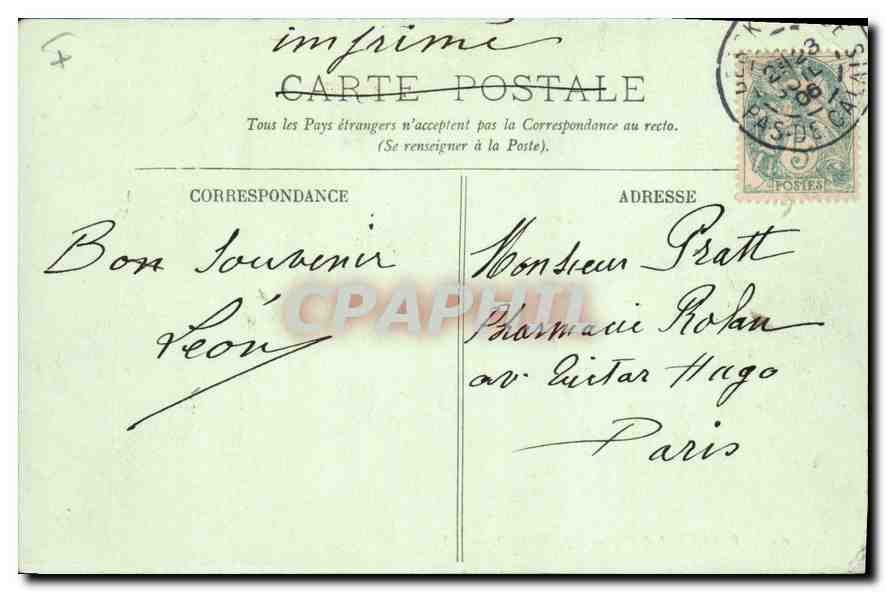 imprimé
CARTE POSTALE
Tous les Pays étrangers n'acceptent pas la Correspondance au recto.
(Se renseigner à la Poste).
PAS-DE-CALAIS
POSTES
CORRESPONDANCE
ADRESSE
Bon Souvenir
Léon
Monsieur Pratt
Pharmacie Rolan
av Victor Hugo
Paris
CPAPHIL